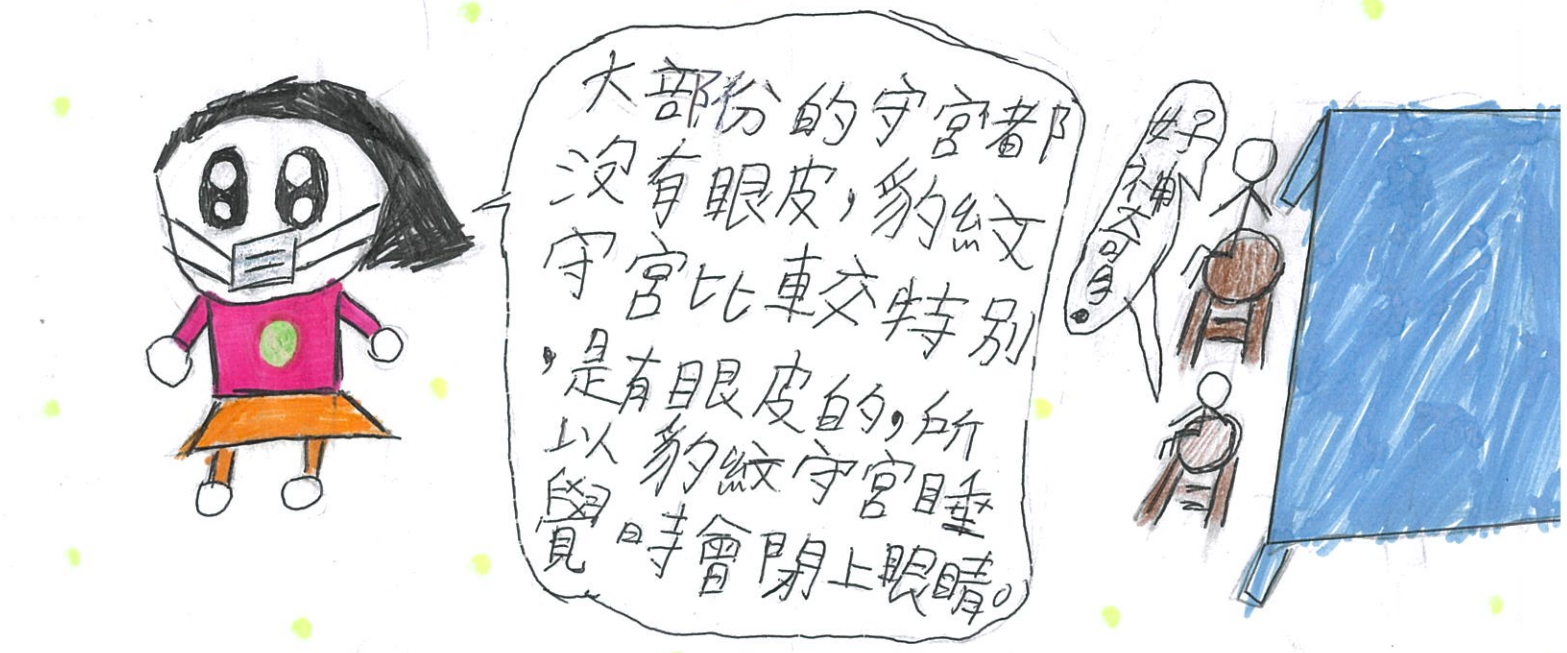 大部份的守宮都
沒有眼皮，豹紋
守宮比較特別
，是有眼皮的，所
以豹紋守宮睡
覺時會閉上眼睛。
好神奇